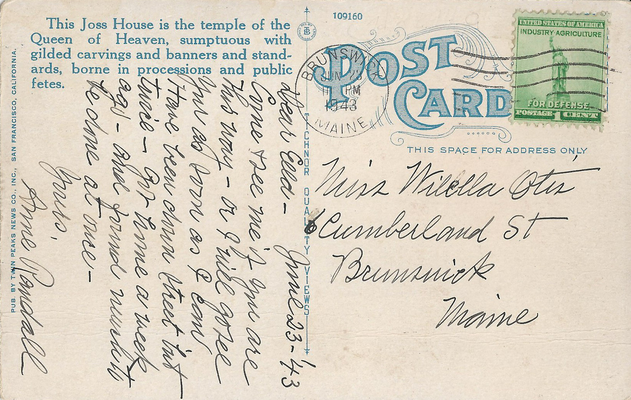 This Joss House is the temple of the
Queen of Heaven, sumptuous with
gilded carvings and banners and stand-
ards, borne in processions and public
fetes.
PUB. BY TWIN PEAKS NEWS CO., INC., SAN FRANCISCO, CALIFORNIA.
109160
TICHNOR QUALITY VIEWS
POST
CARD
THIS SPACE FOR ADDRESS ONLY
BRUNSWICK
JUN
PM
1943
MAINE
UNITED STATES OF AMERICA
INDUSTRY·AGRICULTURE
FOR DEFENSE
POSTAGE 1 CENT
June 23-'43
Dear
Come & see me if you are
this way - or I will go see
you as soon as I can
Have been down street but
twice - Got home a week
ago - and found much to
be done at once -
Yours
Randall
Miss Wilella Otis
6 Cumberland St
Brunswick
Maine